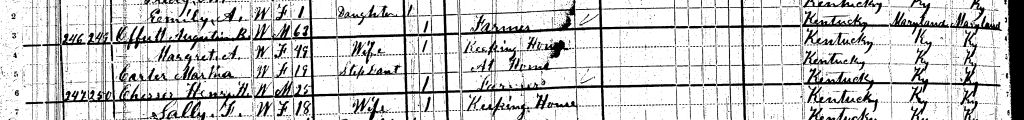 Kentucky Ky Ky
2 Emily, A. W F 1 Daughter 1 Kentucky Maryland Maryland
3 246 249 Offutt Augustin B. W M 63 1 Farmer Kentucky Ky Ky
4 Margret. A. W F 49 Wife 1 Keeping House Kentucky Ky Ky
5 Carter Martha W F 19 Step Daut At Home Kentucky Ky Ky
6 247 250 Chesser Henry W M 25 1 Farmer Kentucky Ky Ky
7 Sally. F. W F 18 Wife 1 Keeping House Kentucky Ky Ky